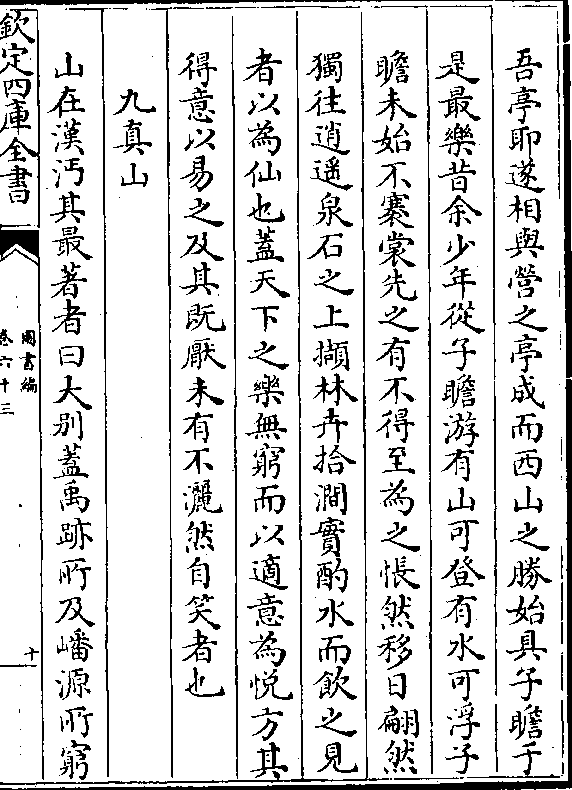 吾亭耶遂相與營之亭成而西山之勝始具子瞻于
是最樂昔余少年從子瞻游有山可登有水可浮子
瞻未始不褰裳先之有不得至為之悵然移日翩然
獨往逍遥泉石之上擷林卉拾澗實酌水而飲之見
者以為仙也蓋天下之樂無窮而以適意為悦方其
得意以易之及其既厭未有不灑然自笑者也
九真山
山在漢沔其最著者曰大别蓋禹跡所及嶓源所窮
欽定四庫全書
圖書編
卷六十三
十